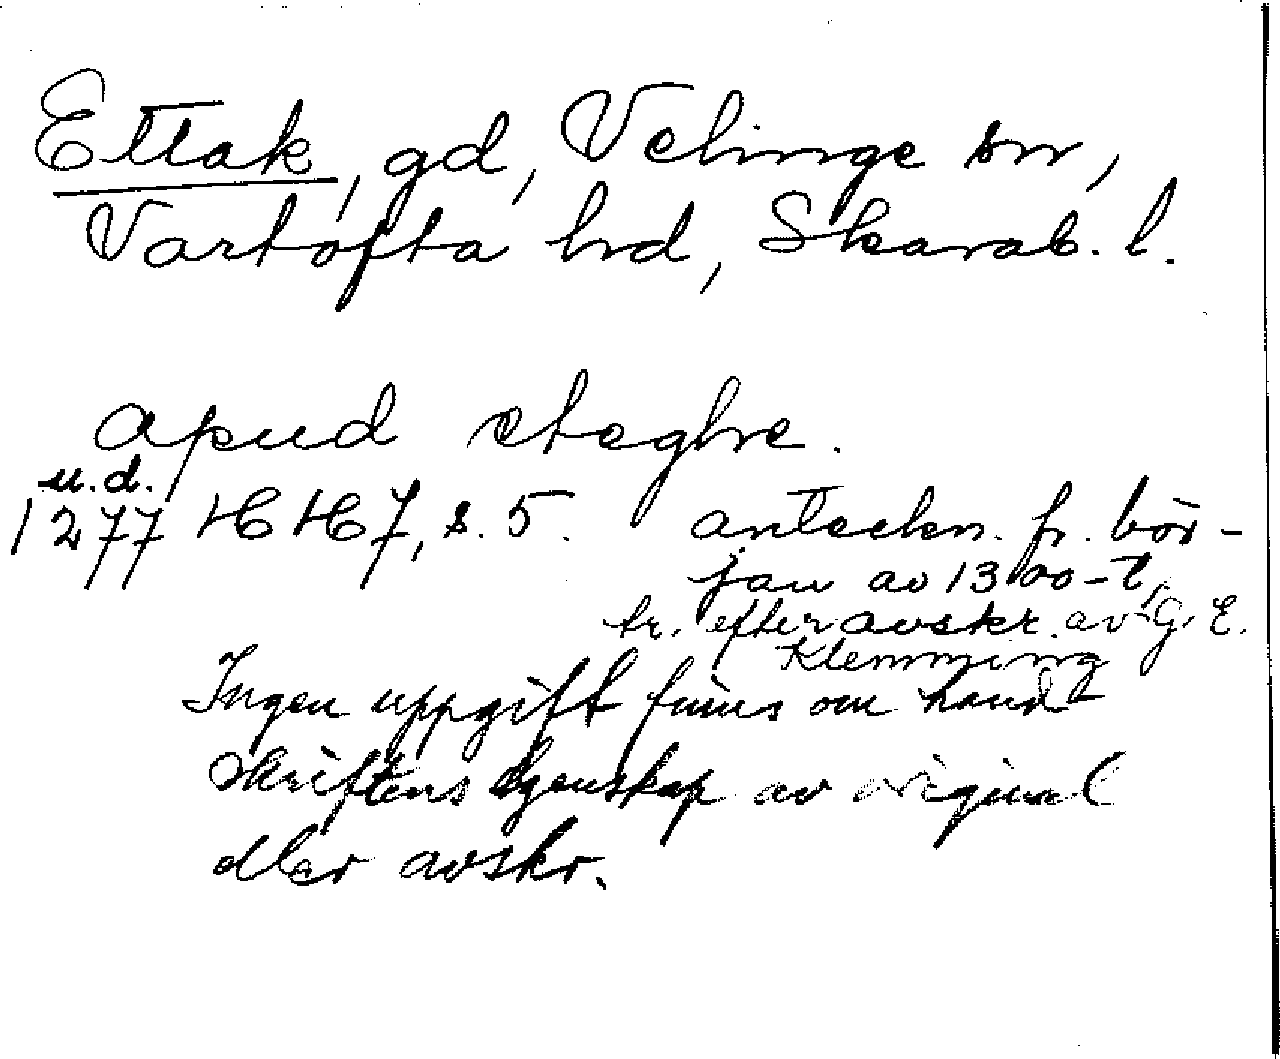 Ettak, gd, Velinge sn,
Vartofta hd, Skarab. l.
apud etaghe.
u.d.
1277 HH 7, s. 5. anteckn. fr. bör-
jan av 1300-t,
tr. efter avskr. av G. E.
Klemming
Ingen uppgift finns om hand-
skriftens egenskap av original
eller avskr.